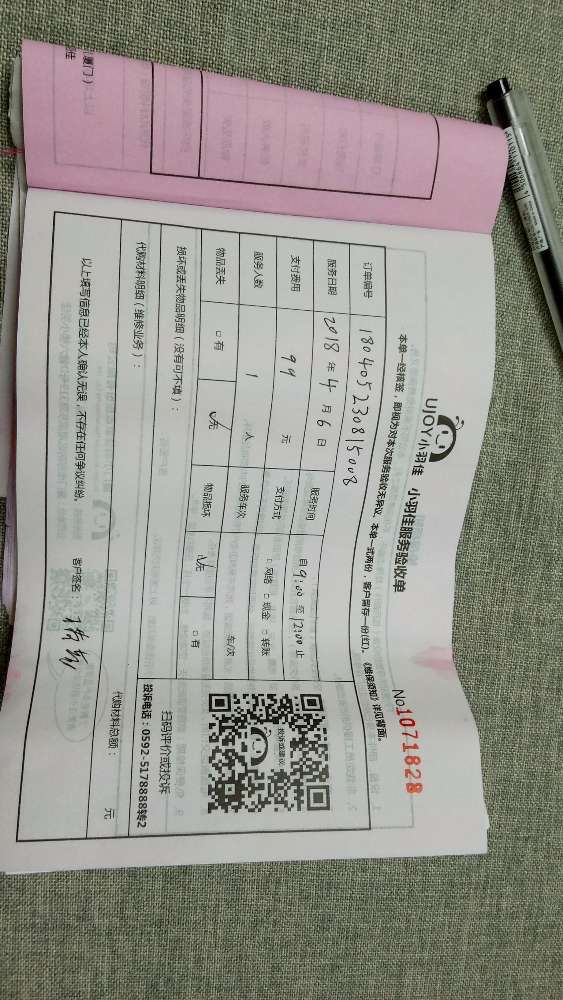 UJOY小羽佳 小羽佳服务验收单
No1071828
本单一经模签，即视为对本次服务验收无异议。本单一式两份，客户留存一份(红)。《维保须知》详见背面。
订单编号 180405230815008
服务日期 2018年4月6日 服务时间 自9:00至12:00止
支付费用 99元 支付方式 □网络 □现金 □转账
服务人数 1人 服务车次 车/次
物品丢失 □有 ☑无 物品损坏 ☑无 □有
投诉或建议
扫码评价或投诉
投诉电话：0592-5178888转2
损坏或丢失物品明细（没有可不填）：
代购材料明细（维修业务）：
代购材料总额： 元
以上填写信息已经本人确认无误，不存在任何争议纠纷。 客户签名：